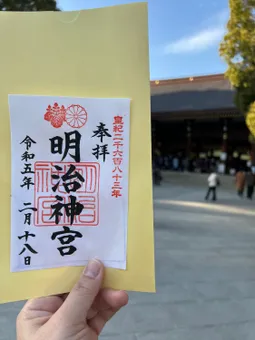 皇紀二千六百八十三年
奉拝
明治神宮
令和五年 二月十八日